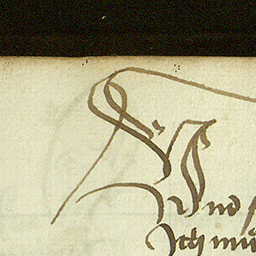 Vnd
Ich mü